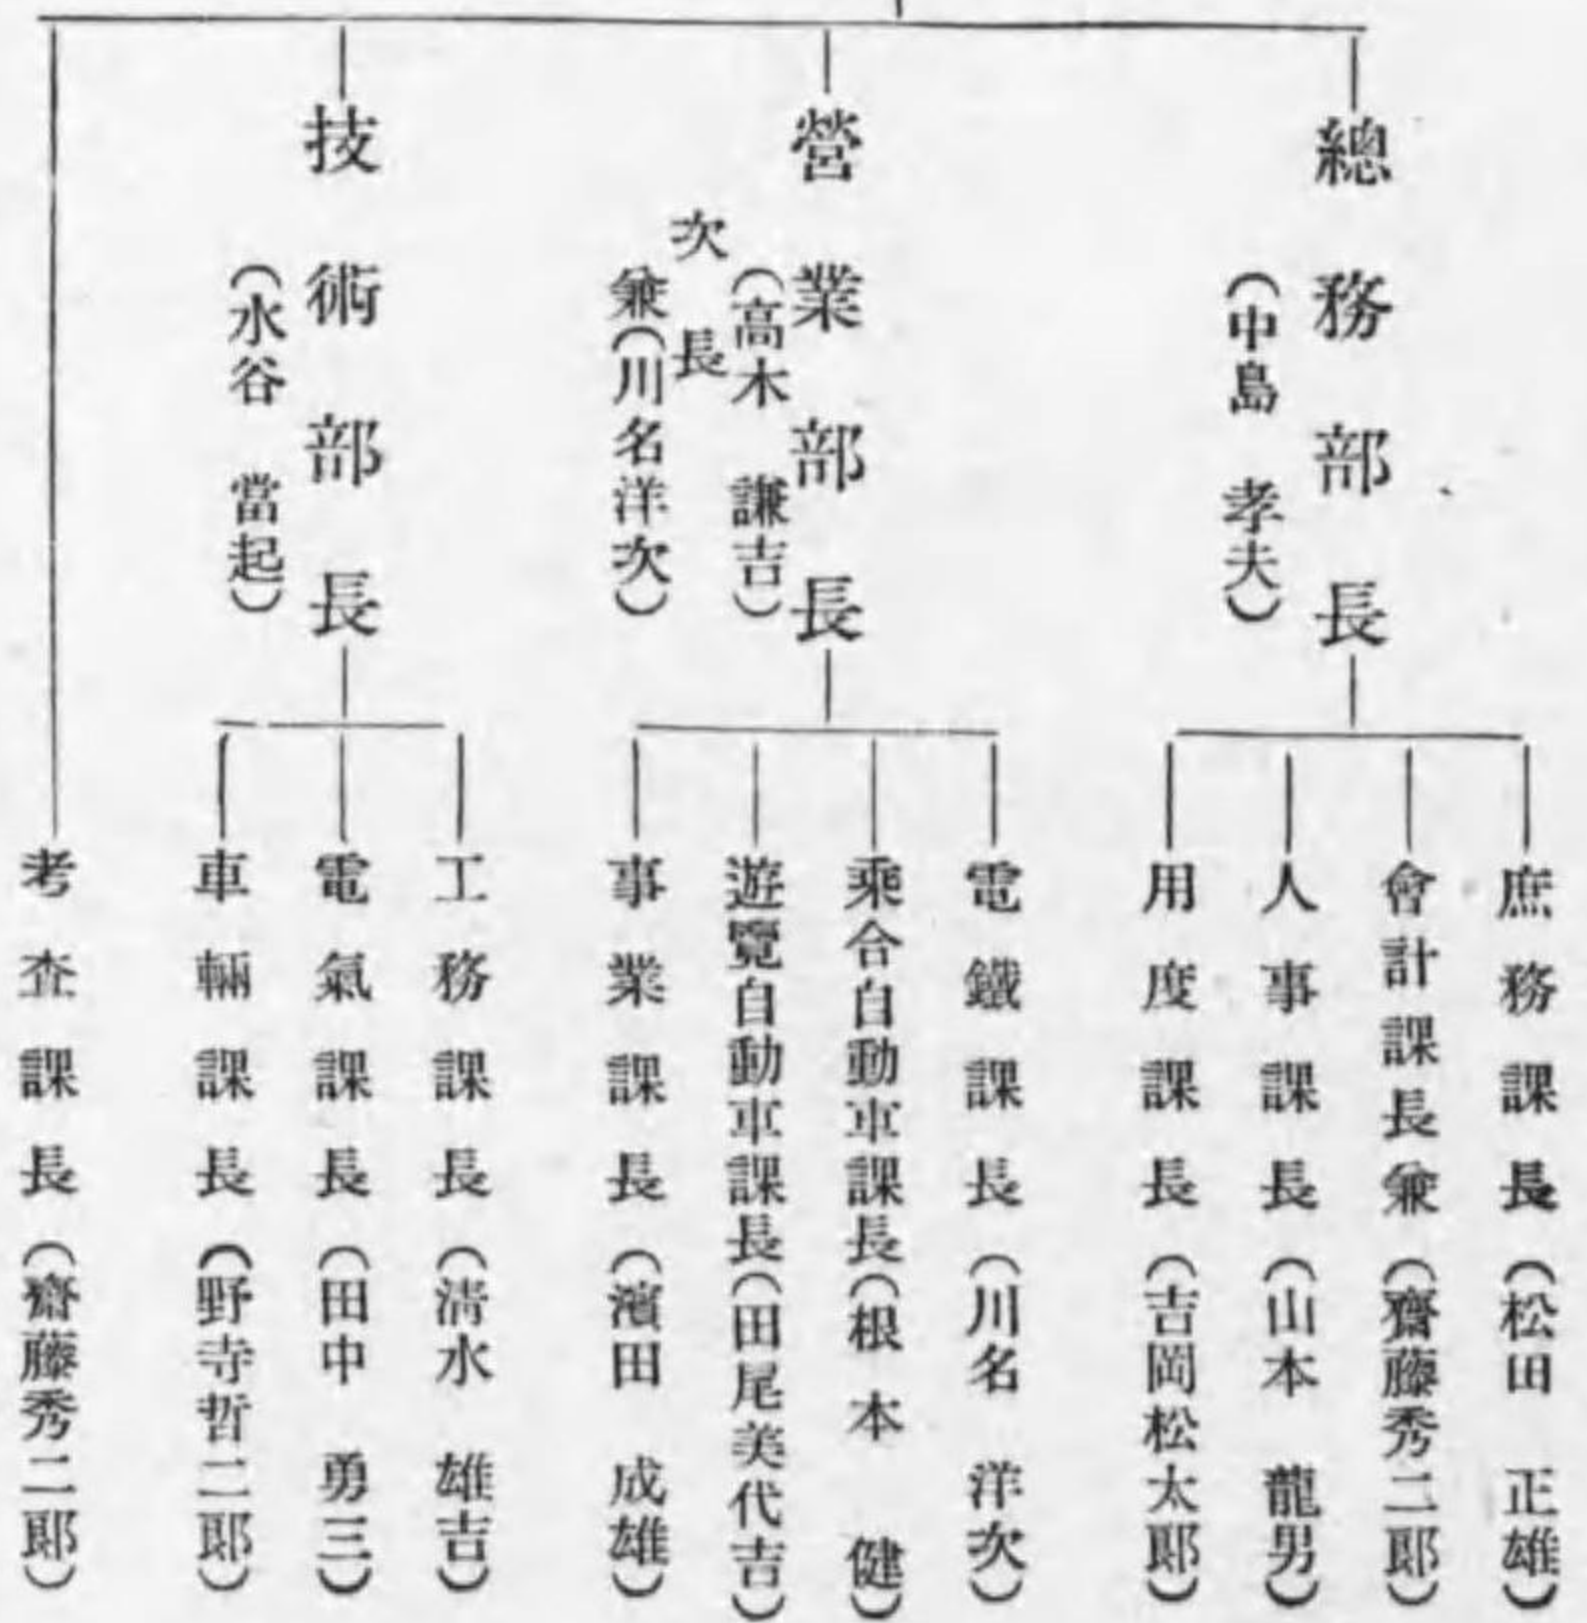 總務部長
(中島 孝夫)
庶務課長(松田 正雄)
會計課長兼(齋藤秀二郎)
人事課長(山本 龍男)
用度課長(吉岡松太郎)
營業部長
(高木 謙吉)
次長
兼(川名洋次)
電鐵課長(川名 洋次)
乘合自動車課長(根本 健)
遊覽自動車課長(田尾美代吉)
事業課長(濱田 成雄)
技術部長
(水谷 當起)
工務課長(淸水 雄吉)
電氣課長(田中 勇三)
車輛課長(野寺哲二郎)
考査課長(齋藤秀二郎)